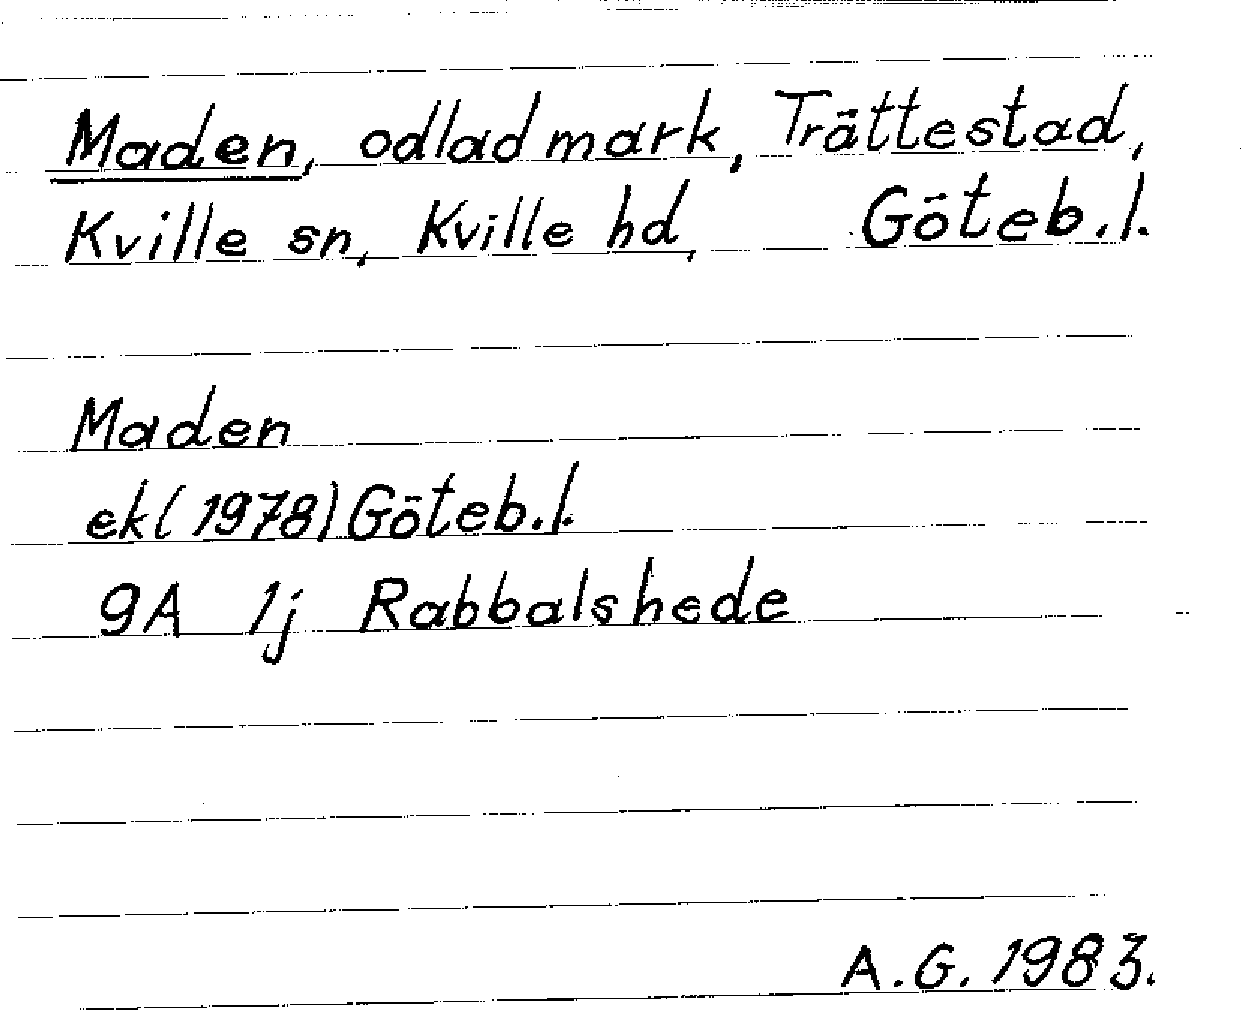 Maden, odlad mark, Trättestad,
Kville sn, Kville hd, Göteb.l.
Maden
ek(1978) Göteb.l.
9A 1j Rabbalshede
A.G. 1983.